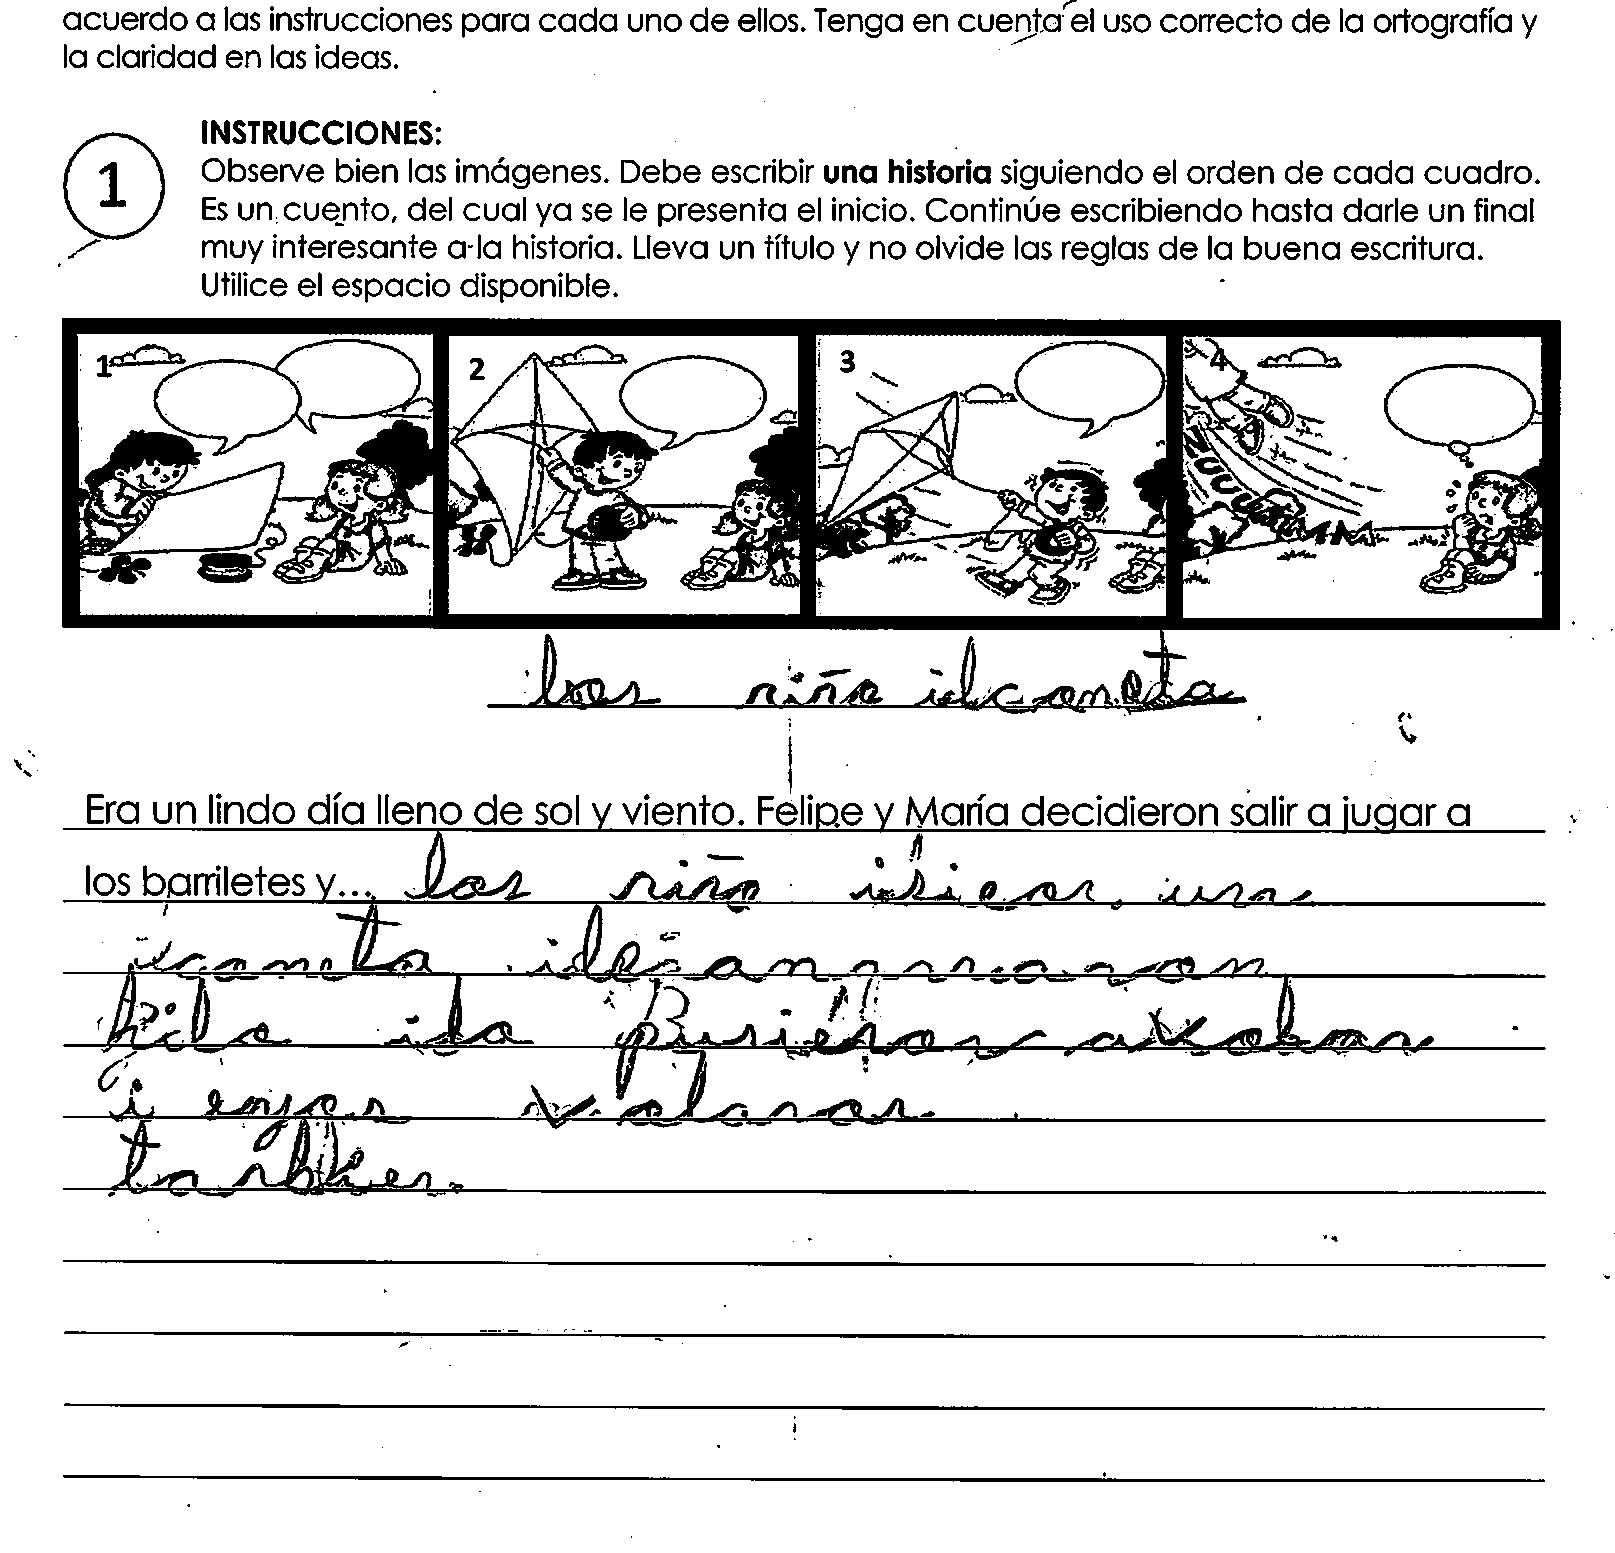 acuerdo a las instrucciones para cada uno de ellos. Tenga en cuenta el uso correcto de la ortografía y
la claridad en las ideas.
INSTRUCCIONES:
1
Observe bien las imágenes. Debe escribir una historia siguiendo el orden de cada cuadro.
Es un cuento, del cual ya se le presenta el inicio. Continúe escribiendo hasta darle un final
muy interesante a la historia. Lleva un título y no olvide las reglas de la buena escritura.
Utilice el espacio disponible.
1 2 3 4
los niño ilconeta
Era un lindo día lleno de sol y viento. Felipe y María decidieron salir a jugar a
los barriletes y... los niño isieron una
coneta
hilo ilo pusieron avolar
i eyos volaron